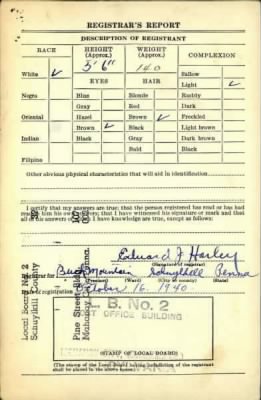 REGISTRAR'S REPORT
DESCRIPTION OF REGISTRANT
RACE HEIGHT (Approx.) WEIGHT (Approx.) COMPLEXION
5' 6" 140
White ✓ Sallow
EYES HAIR Light ✓
Negro Blue Blonde Ruddy
Gray Red Dark
Oriental Hazel Brown ✓ Freckled
Brown ✓ Black Light brown
Indian Black Gray Dark brown
Bald Black
Filipino
Other obvious physical characteristics that will aid in identification
I certify that my answers are true; that the person registered has read or has had
read to him his own answers; that I have witnessed his signature or mark and that
all of his answers of which I have knowledge are true, except as
follows:
Edward J Harley
(Signature of registrar)
Registrar for Buck Mountain Schuylkill Penna
Date of registration October 16 1940
Local Board No. 2
Schuylkill County
Pine Street
Mahanoy
Penna.
L. B. No. 2
POST OFFICE BUILDING
(STAMP OF LOCAL BOARD)
(The stamp of the Local Board having jurisdiction of the registrant
shall be placed in the above space.)